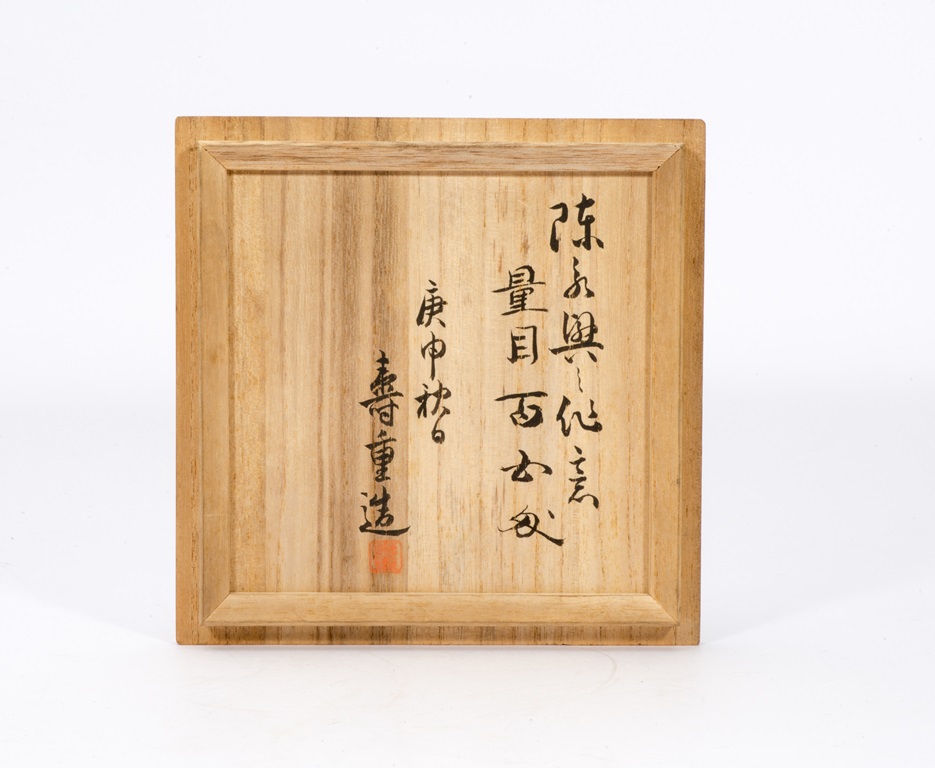 陳永興之作意
量目百五匁
庚申秋日
壽重造